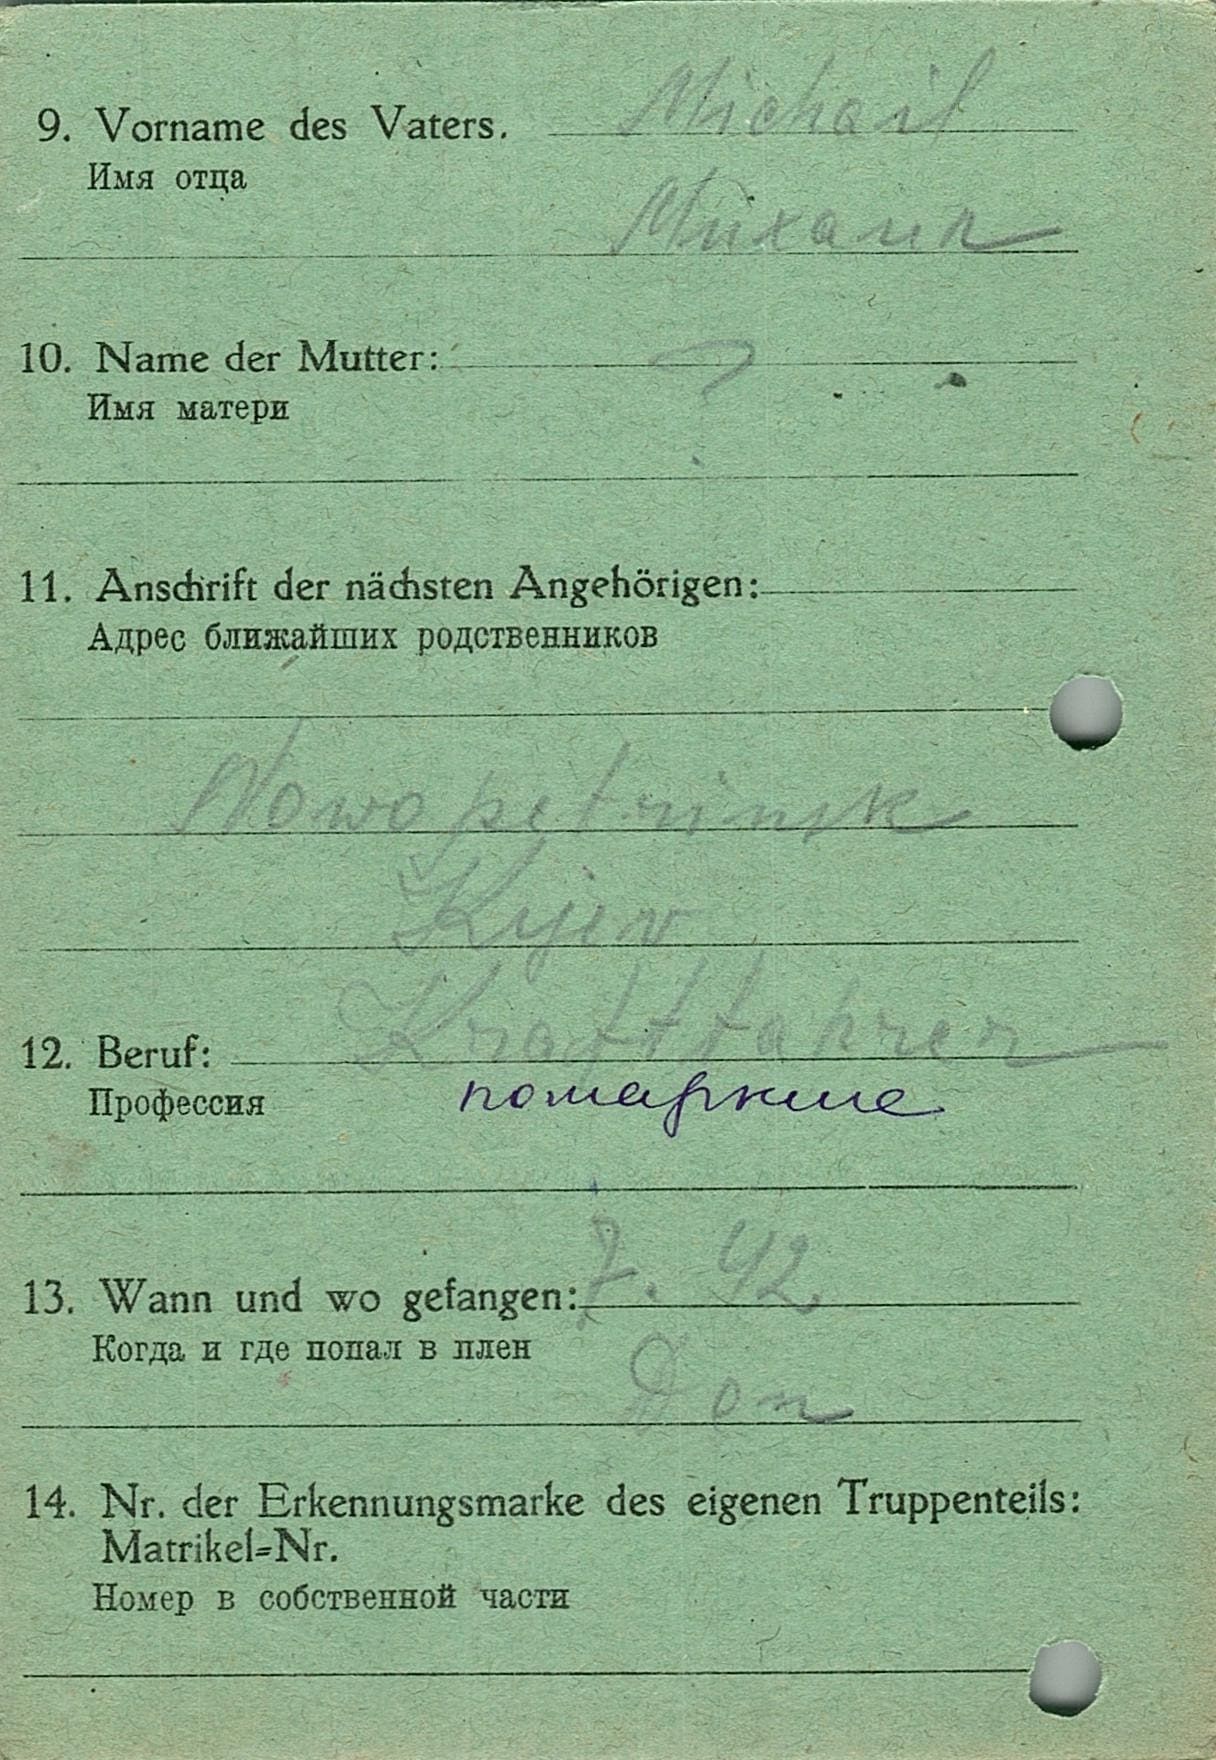 9. Vorname des Vaters. Michail
Имя отца
Михаил
10. Name der Mutter: ?
Имя матери
11. Anschrift der nächsten Angehörigen:
Адрес ближайших родственников
Nowopetrinsk
Kijew
12. Beruf: Kraftfahrer
Профессия
13. Wann und wo gefangen: 7. 42
Когда и где попал в плен
Don
14. Nr. der Erkennungsmarke des eigenen Truppenteils:
Matrikel=Nr.
Номер в собственной части